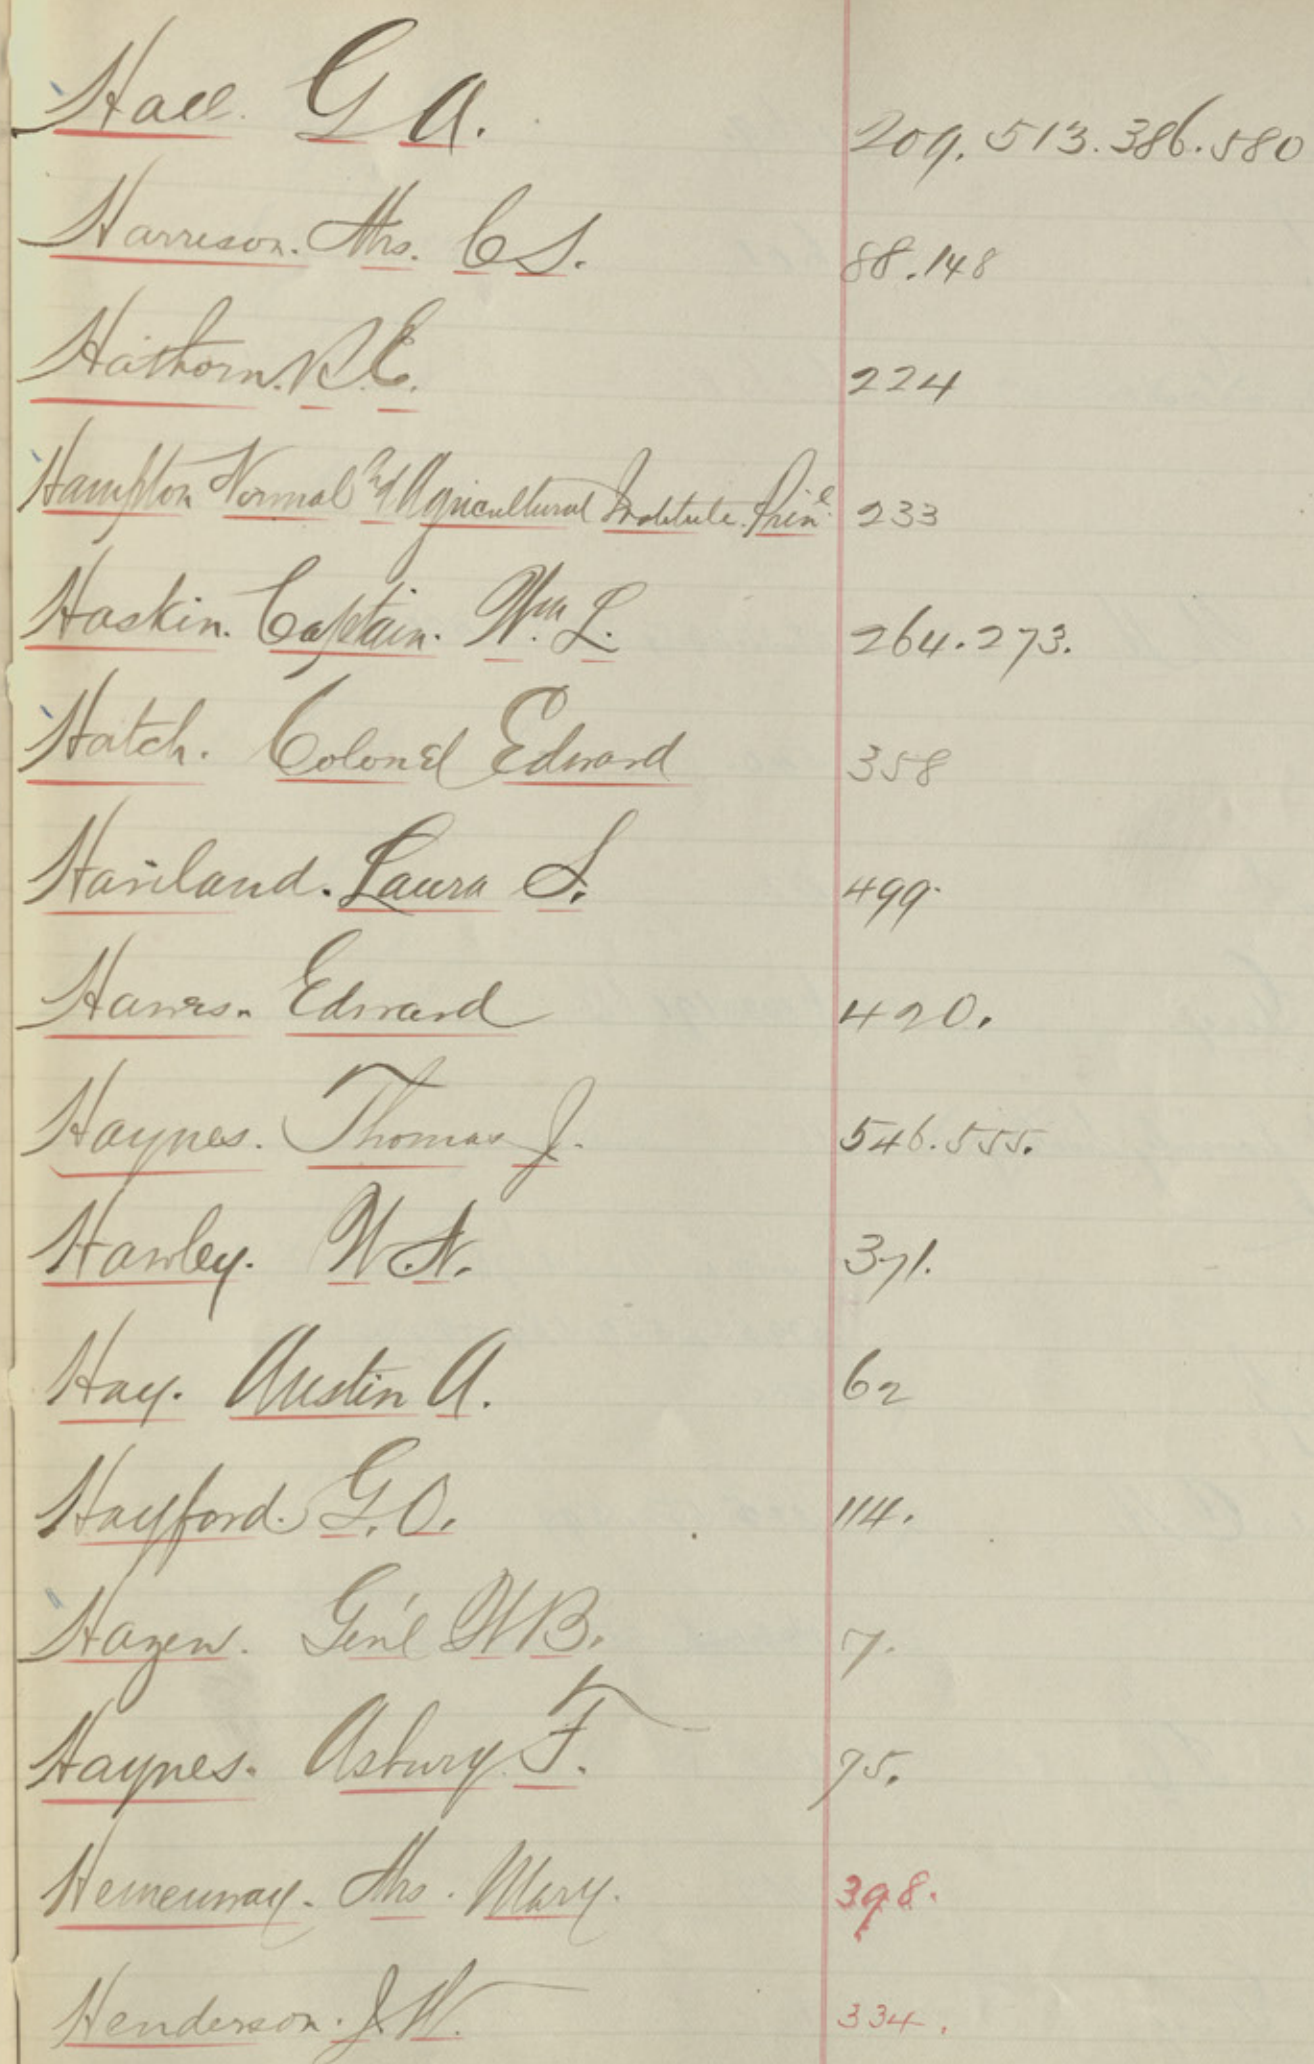 Hall. G A. 209. 513. 386. 580
Harrison. Mrs. C S. 88. 148
Hathorn. R. E. 224
Hampton Normal and Agricultural Institute. Prin 233
Haskin. Captain. Wm L. 264. 273.
Hatch. Colonel Edward 358
Haviland. Laura S. 499.
Hawes. Edward 420.
Haynes. Thomas J. 546. 555.
Hawley. W. N. 371.
Hay. Austin A. 62
Hayford. G. O. 114.
Hazen. Gen'l W B. 7.
Haynes. Asbury. F. 75.
Hemenway. Mrs. Mary. 398.
Henderson. J. W. 334.